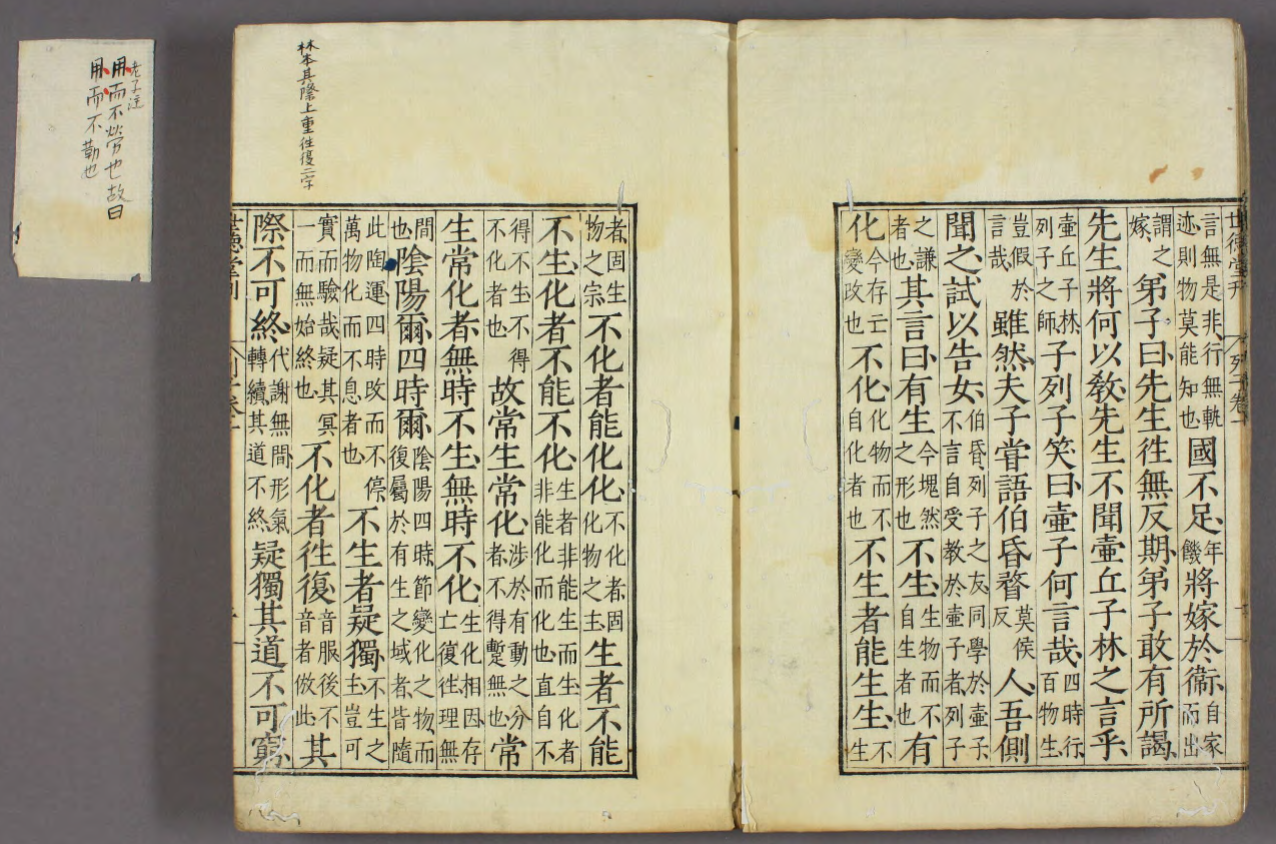 世德堂刋 列子卷一
言無是非行無軌迹則物莫能知也國不足年饑將嫁於衞自家而出
謂之嫁弟子曰先生徃無反期弟子敢有所謁
先生將何以敎先生不聞壷丘子林之言乎
壷丘子林列子之師子列子笑曰壷子何言哉四時行百物生
豈假於言哉雖然夫子甞語伯昏瞀莫候反人吾側
聞之試以告女伯昏列子之友同學於壷子不言自受教於壷子者列子
之謙者也其言曰有生今塊然之形也不生生物而不自生者也有
化今存亡變改也不化化物而不自化者也不生者能生生不生
者固生物之宗不化者能化化不化者固化物之主生者不能
不生化者不能不化生者非能生而生化者非能化而化也直自不
得不生不得不化者也故常生常化涉於有動之分者不得蹔無也常
生常化者無時不生無時不化生化相因存亡復徃理無
間也隂陽爾四時爾隂陽四時節變化之物而復屬於有生之域者皆隨
此陶運四時改而不停萬物化而不息者也不生者疑獨不生之主豈可
實而驗哉疑其冥一而無始終也不化者徃復音服後不音者倣此其
際不可終代謝無間形氣轉續其道不終疑獨其道不可窮
世德堂刋
林本其際上重徃復二字
老子注
用而不勞也故曰
用而不勤也